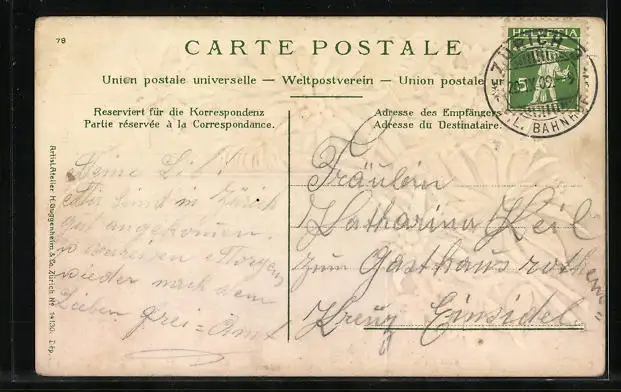 79
CARTE POSTALE
Union postale universelle — Weltpostverein — Union postale
Reserviert für die Korrespondenz
Partie réservée à la Correspondance.
Adresse des Empfängers
Adresse du Destinataire.
HELVETIA
5
ZÜRICH
09
BAHNH
Artist. Atelier H. Guggenheim & Co. Zürich No. 14130. Dép.
Meine
sind in Zürich
gut angekommen.
Morgen
wieder nach dem
Lieben Frei=Amt
Fräulein
Katharina Keil
zum Gasthaus rothen
Kreuz Einsidel=